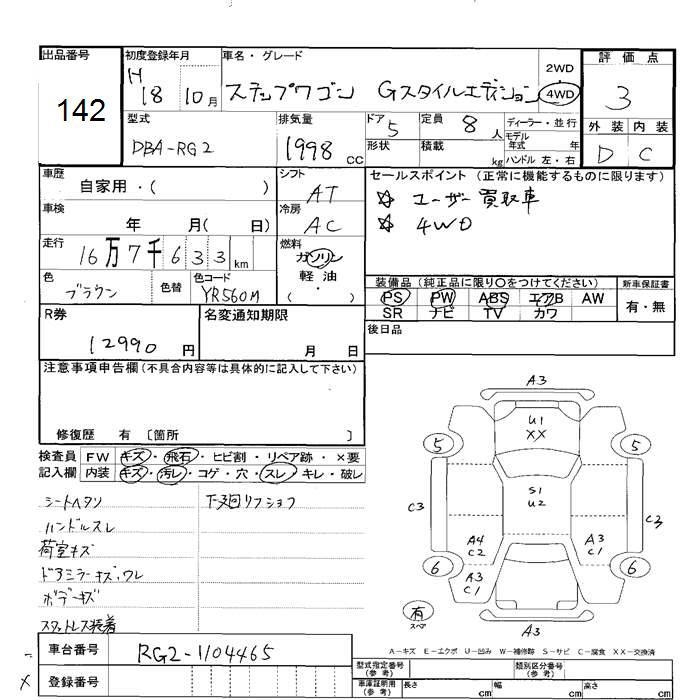 出品番号
142
初度登録年月
H 18 10月
車名・グレード
ステップワゴン Gスタイルエディション
2WD
4WD
評価点
3
外装 内装
D C
型式
DBA-RG2
排気量
1998 cc
ドア 5
形状
定員 8 人
積載 kg
ディーラー・並行
モデル年式 年
ハンドル 左・右
車歴
自家用・( )
シフト
AT
車検
年 月( 日)
冷房
AC
走行
16万7千633km
燃料
ガソリン
軽油
・
( )
色
ブラウン
色替
色コード
YR560M
セールスポイント (正常に機能するものに限ります)
☆ ユーザー買取車
☆ 4WD
装備品 (純正品に限り○をつけてください)
PS PW ABS エアB AW
SR ナビ TV カワ
新車保証書
有・無
後日品
R券
12990 円
名変通知期限
月 日
注意事項申告欄 (不具合内容等は具体的に記入して下さい)
修復歴 有 〔箇所 〕
検査員記入欄
FW キズ・飛石・ヒビ割・リペア跡・×要
内装 キズ・汚レ・コゲ・穴・スレ・キレ・破レ
シートヘタリ
下廻リサフショク
ハンドルスレ
荷室キズ
ドアミラーキズ・ワレ
ボデーキズ
スタットレス装着
A3
U1
XX
5
5
S1
U2
C3
C3
A4
C2
A3
C1
6
6
A3
C1
有
スペア
A3
A-キズ E-エクボ U-凹み W-補修跡 S-サビ C-腐食 XX-交換済
車台番号
RG2-1104465
登録番号
型式指定番号
(参考)
類別区分番号
(参考)
車庫証明用
(参考)
長さ cm
幅 cm
高さ cm